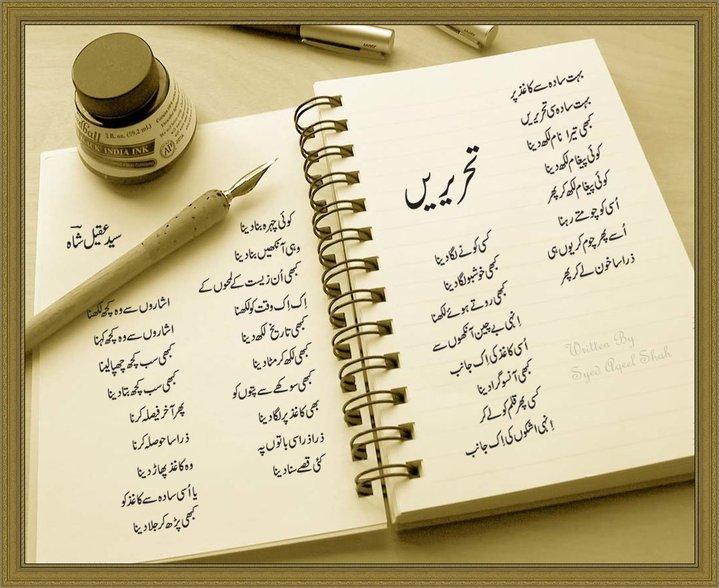 تحریریں
بہت سادہ سے کاغذ پر
بہت سادہ سی تحریریں
کبھی تیرا نام لکھ دینا
کوئی پیغام لکھ دینا
کوئی پیغام لکھ کر پھر
اُسی کو چومتے رہنا
اُسے پھر چوم کر یوں ہی
ذرا سا خون لے کر پھر
کسی کونے لگا دینا
کبھی خوشبو لگا دینا
کبھی روتے ہوئے لکھنا
اِنہی بے چین آنکھوں سے
اُسی کاغذ کی اک جانب
کبھی آنسو گرا دینا
کسی پھر قلم کو لے کر
اِنہی اشکوں کی اِک جانب
کوئی چہرہ بنا دینا
وہی آنکھیں بنا دینا
کبھی اُن زیست کے لمحوں کے
اِک اِک وقت کو لکھنا
کبھی تاریخ لکھ دینا
کبھی لکھ کر مٹا دینا
کبھی سوکھے سے پتوں کو
بھی کاغذ پر لگا دینا
ذرا ذرا سی باتوں پہ
کئی قصے سنا دینا
اشاروں سے وہ کچھ لکھنا
اشاروں سے وہ کچھ کہنا
کبھی سب کچھ چھپا لینا
کبھی سب کچھ بتا دینا
پھر آخر فیصلہ کرنا
ذرا سا حوصلہ کرنا
وہ کاغذ پھاڑ دینا
یا اُسی سادہ سے کاغذ کو
کبھی پڑھ کر جلا دینا
سید عقیل شاہ
Written By
Syed Aqeel Shah
2 fl. oz. (59.2 mL)
INDIA INK
AP